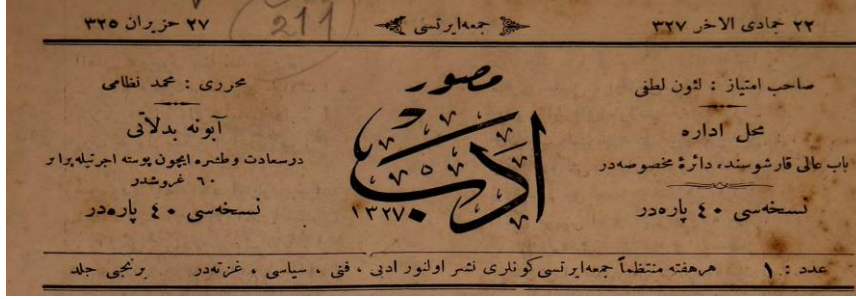 ٢٢ جمادى الاخر ٣٢٧
جمعه‌ايرتسى
٢٧ حزيران ٣٢٥
(211)
صاحب امتياز : لئون لطفى
محل اداره
باب عالى قارشوسنده دائرۀ مخصوصه‌در
نسخه‌سى ٤٠ پاره‌در
مصور
ادب
١٣٢٧
محررى : محمد نظامى
آبونه بدلاتى
درسعادت و طشره ايچون پوسته اجرتيله برابر
٦٠ غروشدر
نسخه‌سى ٤٠ پاره‌در
عدد : ١ هرهفته منتظماً جمعه‌ايرتسى كونلرى نشر اولنور ادبى ، فنى ، سياسى ، غزته‌در برنجى جلد